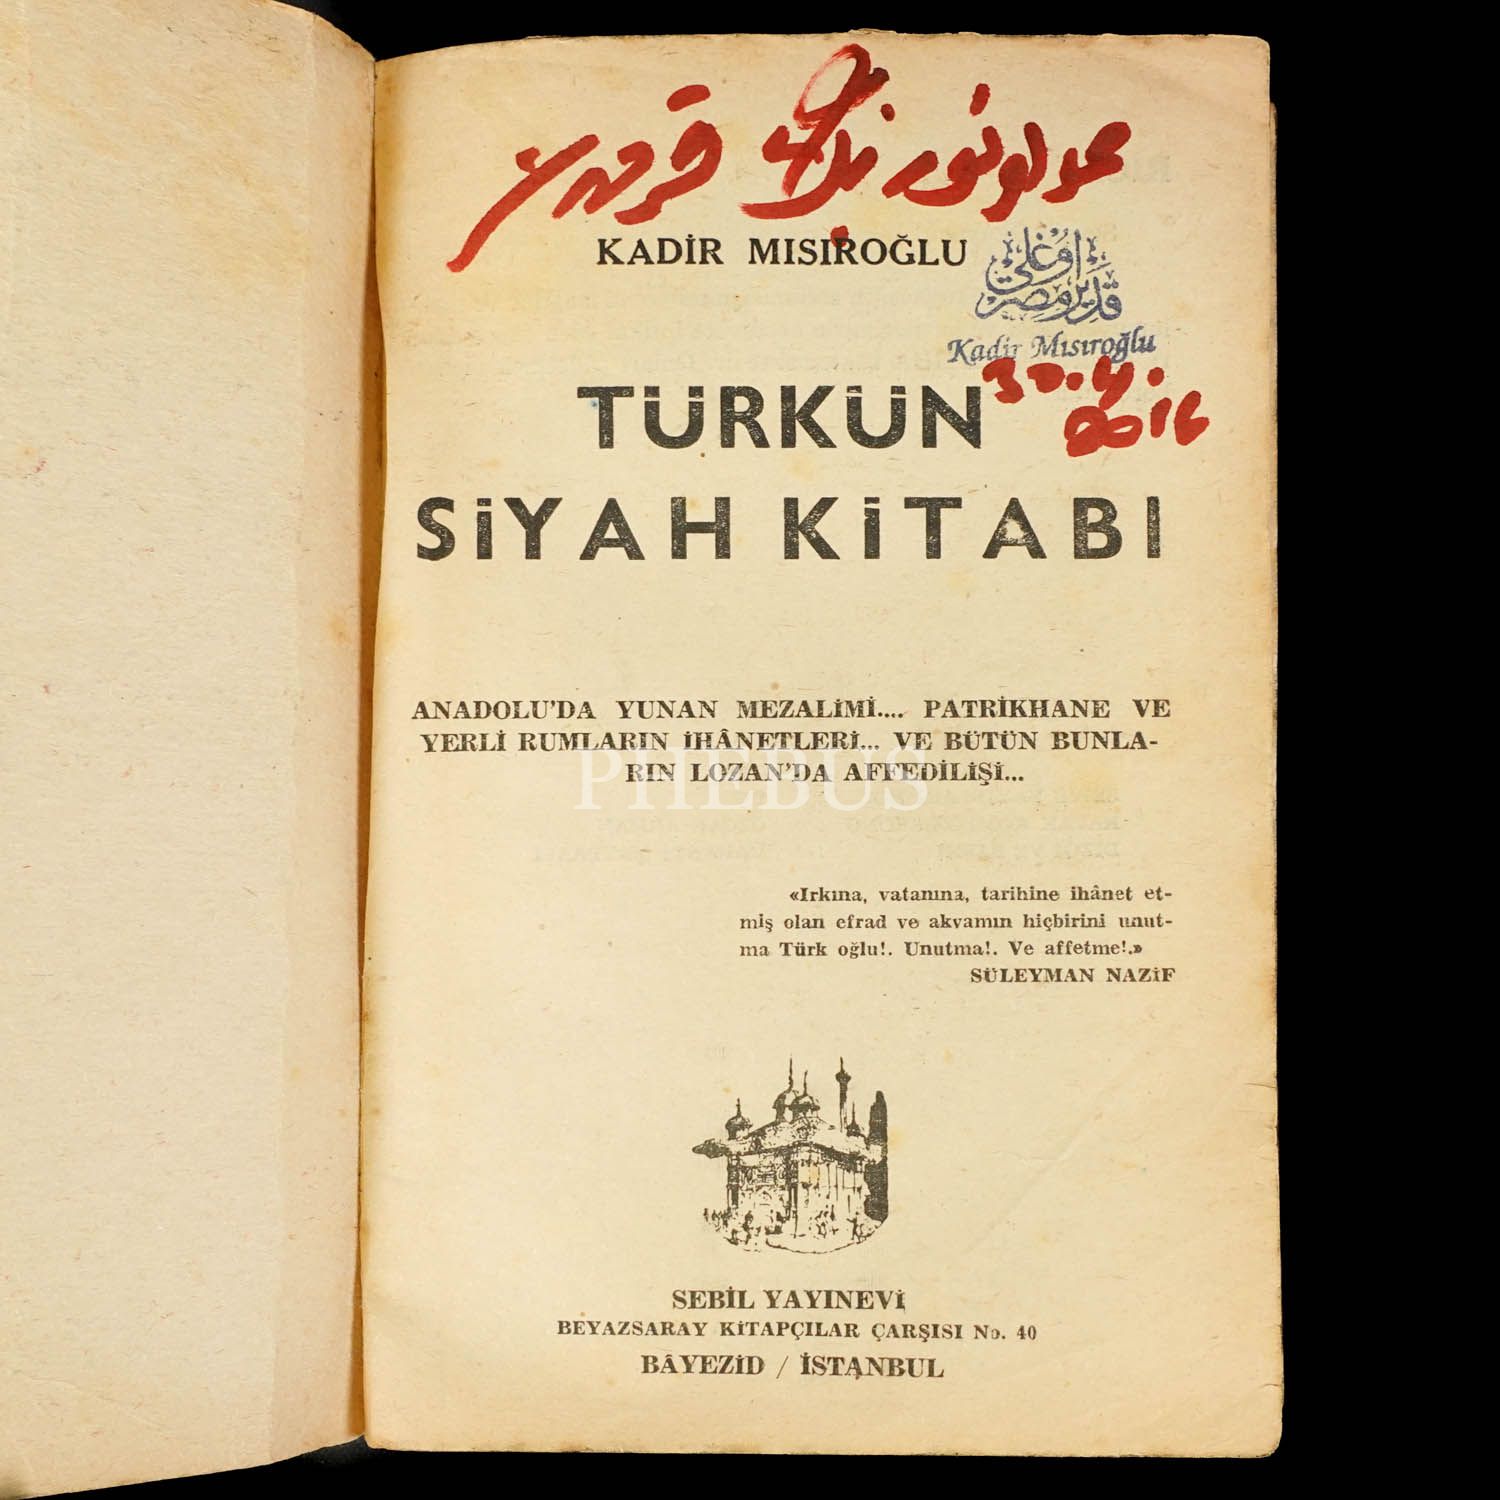 KADİR MISIROĞLU
اوغلى
قدير مصر
Kadir Mısıroğlu
30.4.
2016
TÜRKÜN
SİYAH KİTABI
ANADOLU'DA YUNAN MEZALİMİ.... PATRİKHANE VE
YERLİ RUMLARIN İHÂNETLERİ... VE BÜTÜN BUNLA-
RIN LOZAN'DA AFFEDİLİŞİ...
PHEBUS
«Irkına, vatanına, tarihine ihânet et-
miş olan efrad ve akvamın hiçbirini unut-
ma Türk oğlu!. Unutma!. Ve affetme!.»
SÜLEYMAN NAZİF
SEBİL YAYINEVİ
BEYAZSARAY KİTAPÇILAR ÇARŞISI No. 40
BÂYEZİD / İSTANBUL